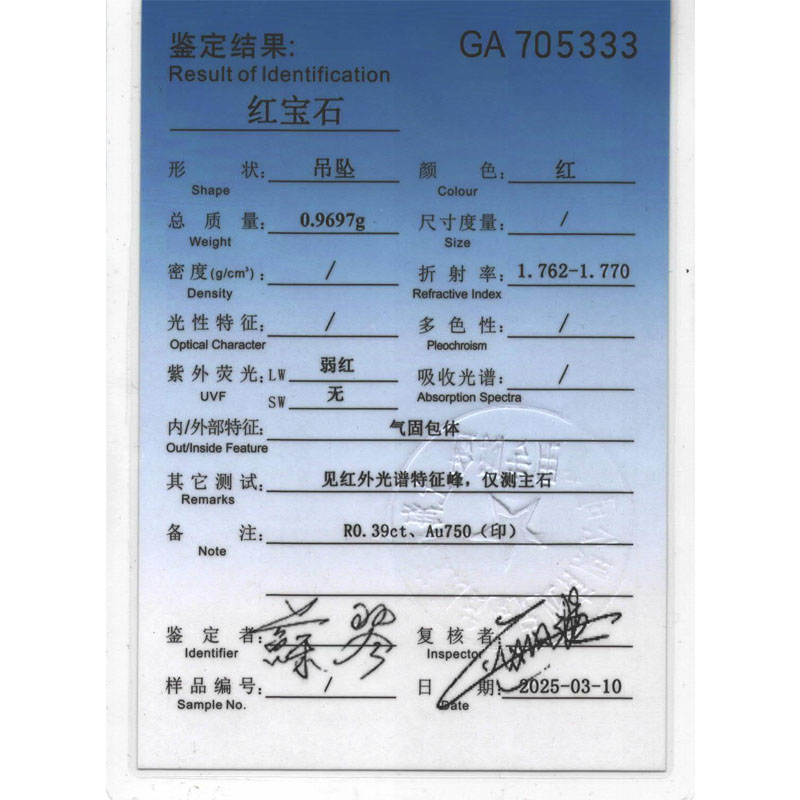 鉴定结果: GA 705333
Result of Identification
红宝石
形 状: 吊坠 颜 色: 红
Shape Colour
总 质 量: 0.9697g 尺寸度量: /
Weight Size
密度(g/cm³): / 折 射 率: 1.762-1.770
Density Refractive Index
光性特征: / 多 色 性: /
Optical Character Pleochroism
紫外荧光: LW 弱红 吸收光谱: /
UVF SW 无 Absorption Spectra
内/外部特征: 气固包体
Out/Inside Feature
其它测试: 见红外光谱特征峰, 仅测主石
Remarks
备 注: R0.39ct、Au750（印）
Note
鉴 定 者: 复 核 者:
Identifier Inspector
样品编号: / 日 期: 2025-03-10
Sample No. Date